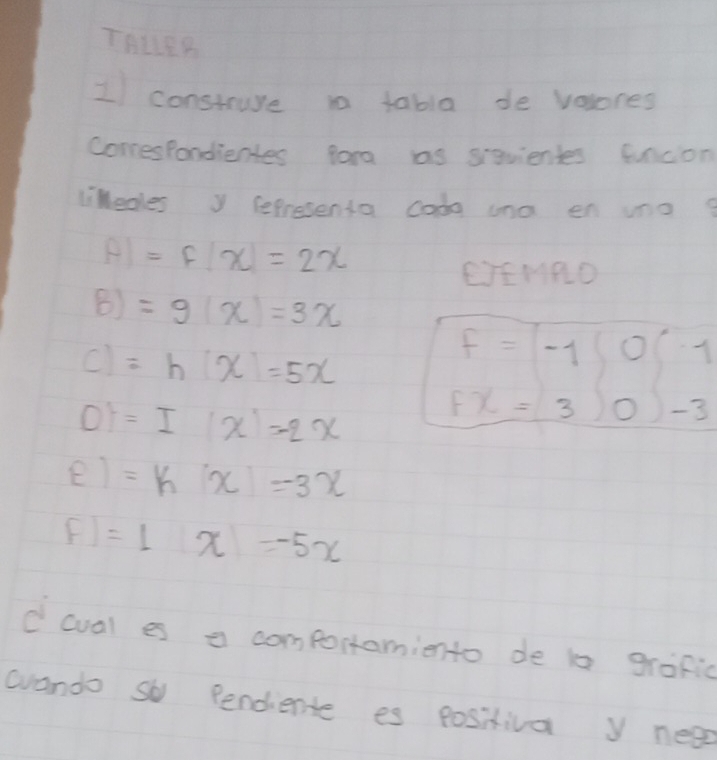 TALLER
1) construye la tabla de valores
correspondientes para las siguientes funcion
lineales y representa cada una en una g
A) = f(x) = 2x
EJEMPLO
B) = g(x) = 3x
f = -1 0 1
C) = h (x) = 5x
fx = 3 0 -3
D) = I (x) = -2x
E) = K (x) = -3x
F) = l (x) = -5x
¿cual es el comportamiento de la grafic
cuando su Pendiente es positiva y nega